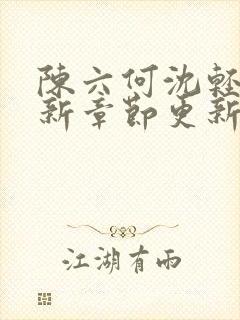 陳六何沈輕
新章節更新
江湖有雨